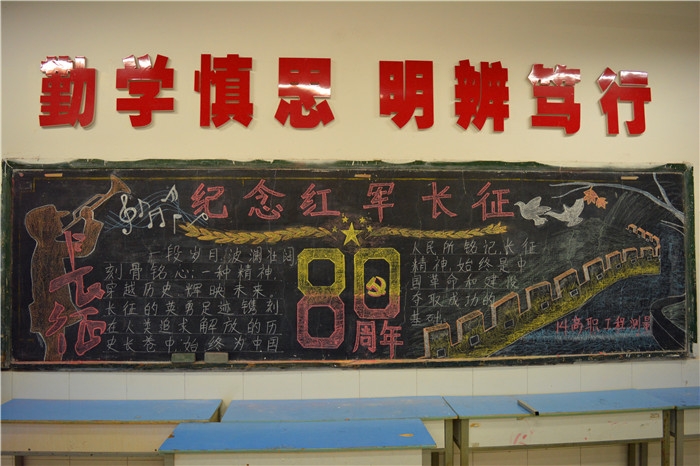 勤学慎思 明辨笃行
纪念红军长征
80
周年
长征
一段岁月,波澜壮阔
刻骨铭心;一种精神,
穿越历史,辉映未来。
长征的英勇足迹,镌刻
在人类追求解放的历
史长卷中,始终为中国
人民所铭记,长征
精神,始终是中
国革命和建设
夺取成功的
基础。
14高职工程测量